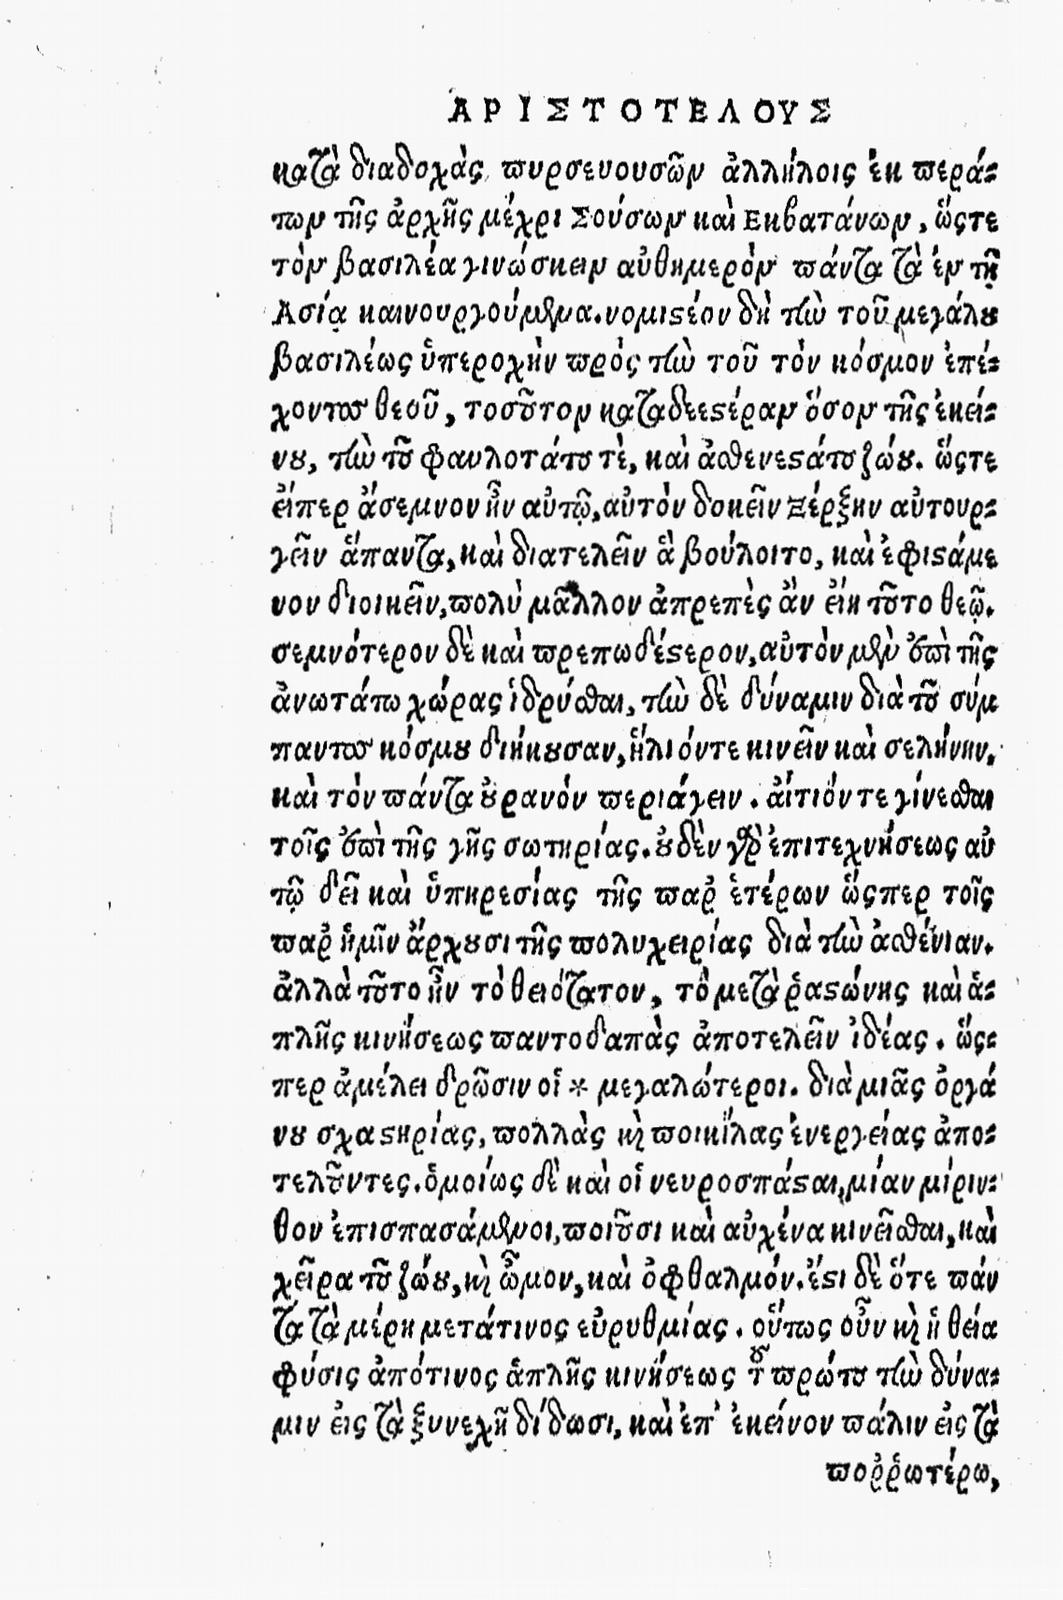 ΑΡΙΣΤΟΤΕΛΟΥΣ
κατὰ διαδοχὰς πυρσευουσῶν ἀλλήλοις ἐκ περά-
των τῆς ἀρχῆς μέχρι Σούσων καὶ Εκβατάνων, ὥςτε
τὸν βασιλέα γινώσκειν αὐθημερὸν πάντα τὰ ἐν τῇ
Ασίᾳ καινουργούμενα. νομιστέον δὴ τὴν τοῦ μεγάλου
βασιλέως ὑπεροχὴν πρὸς τὴν τοῦ τὸν κόσμον ἐπέ-
χοντος θεοῦ, τοσοῦτον καταδεεστέραν ὅσον τῆς ἐκεί-
νου, τὴν τοῦ φαυλοτάτου τὲ, καὶ ἀσθενεστάτου ζώου. ὥςτε
εἴπερ ἄσεμνον ἦν αὐτῷ, αὐτὸν δοκεῖν Ξέρξην αὐτουρ-
γεῖν ἅπαντα, καὶ διατελεῖν ἃ βούλοιτο, καὶ ἐφιστάμε
νον διοικεῖν, πολὺ μᾶλλον ἀπρεπὲς ἂν εἴη τοῦτο θεῷ.
σεμνότερον δὲ καὶ πρεπωδέστερον, αὐτὸν μὲν ἐπὶ τῆς
ἀνωτάτω χώρας ἱδρύσθαι, τὴν δὲ δύναμιν διὰ τοῦ σύμ
παντος κόσμου διήκουσαν, ἥλιόντε κινεῖν καὶ σελήνην.
καὶ τὸν πάντα οὐρανὸν περιάγειν. αἴτιόν τε γίνεσθαι
τοῖς ἐπὶ τῆς γῆς σωτηρίας. οὐδὲν γὰρ ἐπιτεχνήσεως αὐ
τῷ δεῖ καὶ ὑπηρεσίας τῆς παρ' ἑτέρων ὥςπερ τοῖς
παρ' ἡμῖν ἄρχουσι τῆς πολυχειρίας διὰ τὴν ἀσθένιαν.
ἀλλὰ τοῦτο ἦν τὸ θειότατον, τὸ μετὰ ῥαστώνης καὶ ἁ-
πλῆς κινήσεως παντοδαπὰς ἀποτελεῖν ἰδέας. ὥς-
περ ἀμέλει δρῶσιν οἱ * μεγαλώτεροι. διὰ μιᾶς ὀργά
νου σχαστηρίας, πολλὰς καὶ ποικίλας ἐνεργείας ἀπο-
τελοῦντες. ὁμοίως δὲ καὶ οἱ νευροσπάσται, μίαν μίριν-
θον ἐπισπασάμενοι, ποιοῦσι καὶ αὐχένα κινεῖσθαι, καὶ
χεῖρα τοῦ ζώου, καὶ ὦμον, καὶ ὀφθαλμόν. ἔστι δὲ ὅτε πάν
τα τὰ μέρη μετάτινος εὐρυθμίας. οὕτως οὖν καὶ ἡ θεία
φύσις ἀπότινος ἁπλῆς κινήσεως τοῦ πρώτου τὴν δύνα-
μιν εἰς τὰ ξυνεχῆ δίδωσι, καὶ ἐπ' ἐκείνον πάλιν εἰς τὰ
ποῤῥωτέρω,